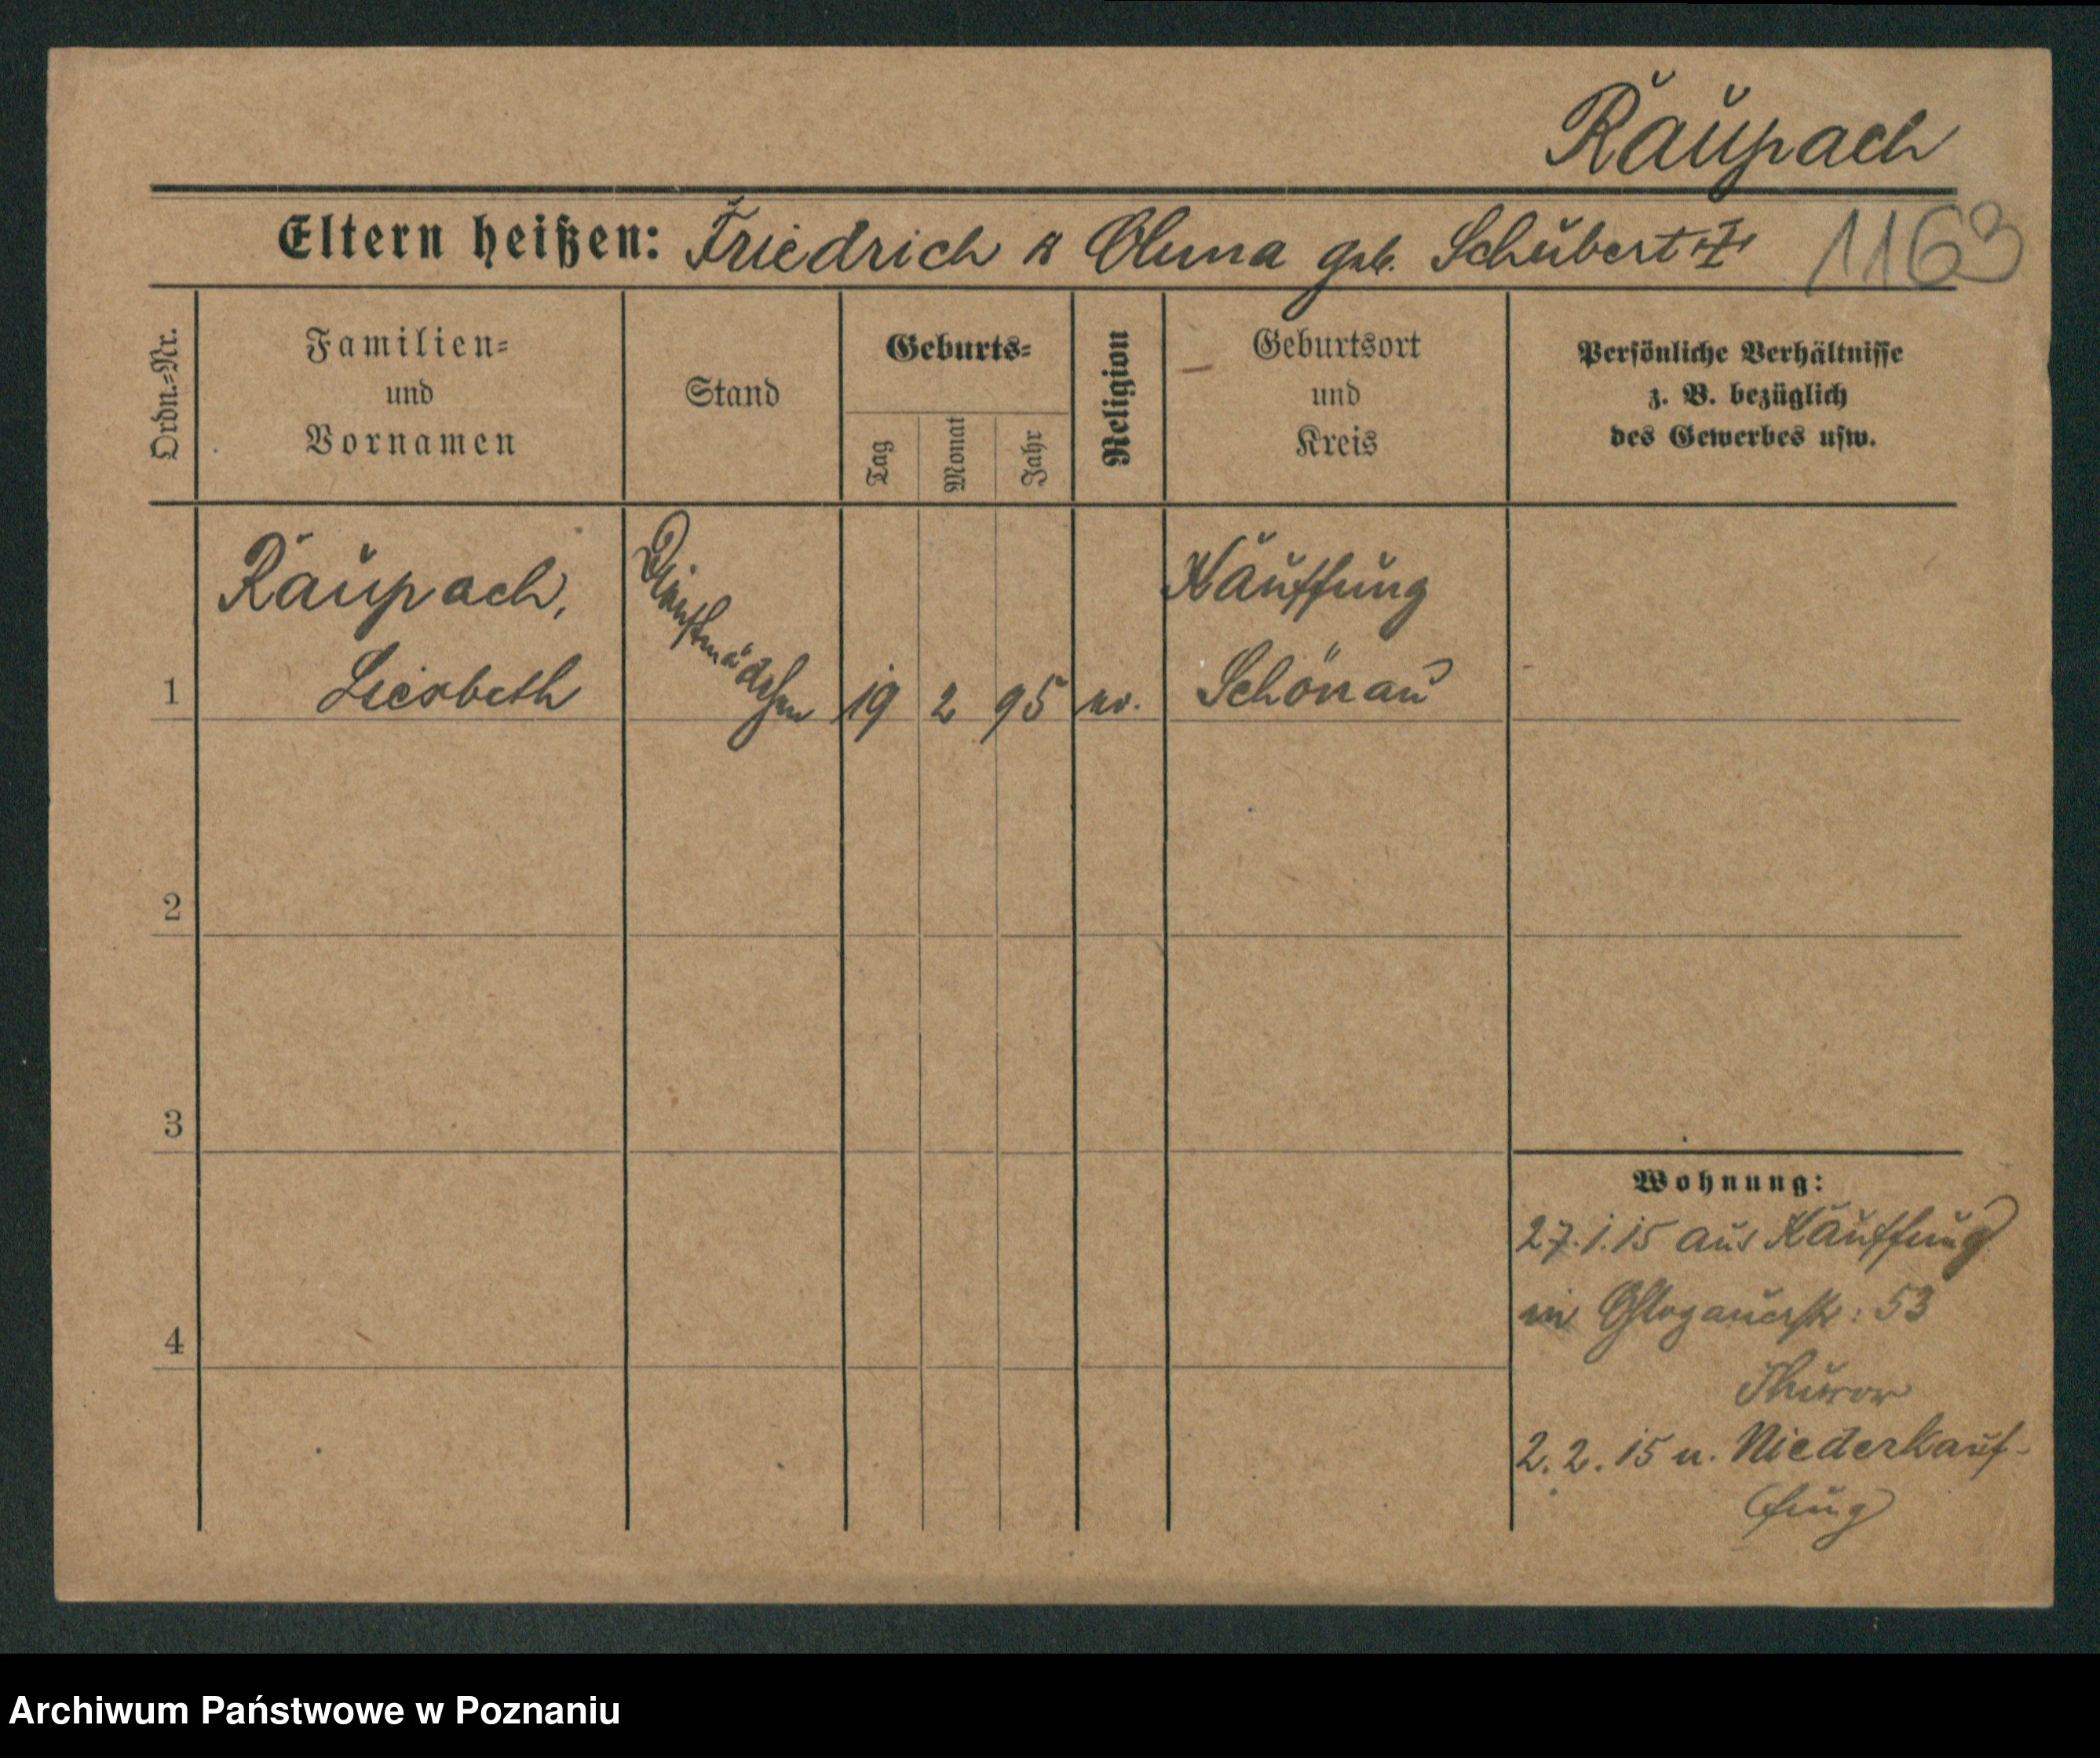 Raupach
Eltern heißen: Friedrich & Anna geb. Schubert
1163
Ordn.-Nr.
Familien-
und
Vornamen
Stand
Geburts-
Tag
Monat
Jahr
Religion
Geburtsort
und
Kreis
Persönliche Verhältnisse
z. B. bezüglich
des Gewerbes usw.
1
Raupach,
Liesbeth
Dienstmädchen
19 2 95 ev.
Kauffung
Schönau
2
3
4
Wohnung:
27.1.15 aus Kauffung
in Glogauerstr: 53
2.2.15 n. Niederkauf-
fung
Archiwum Państwowe w Poznaniu